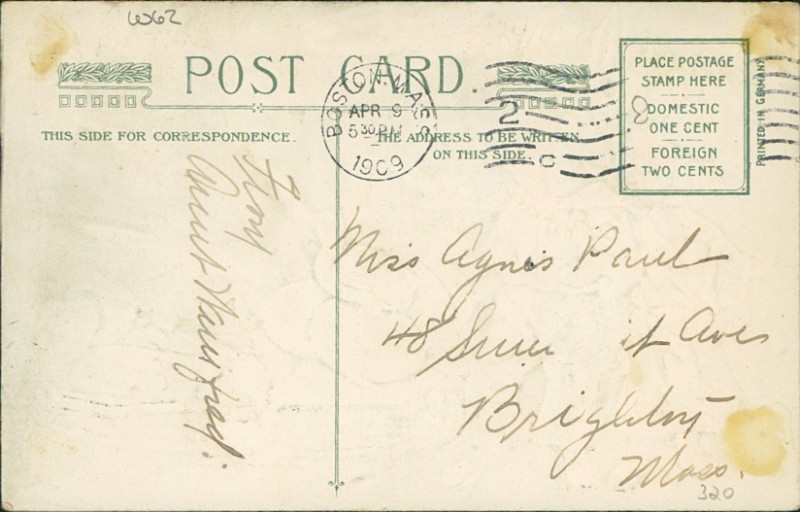 W62
POST CARD.
BOSTON, MASS
APR 9
5 30 PM
1909
2
C
8
PLACE POSTAGE
STAMP HERE
DOMESTIC
ONE CENT
FOREIGN
TWO CENTS
PRINTED IN GERMANY
THIS SIDE FOR CORRESPONDENCE.
THE ADDRESS TO BE WRITTEN
ON THIS SIDE.
From
Aunt Winifred.
Miss Agnes Paul
48 it Ave
Brighton
Mass.
320